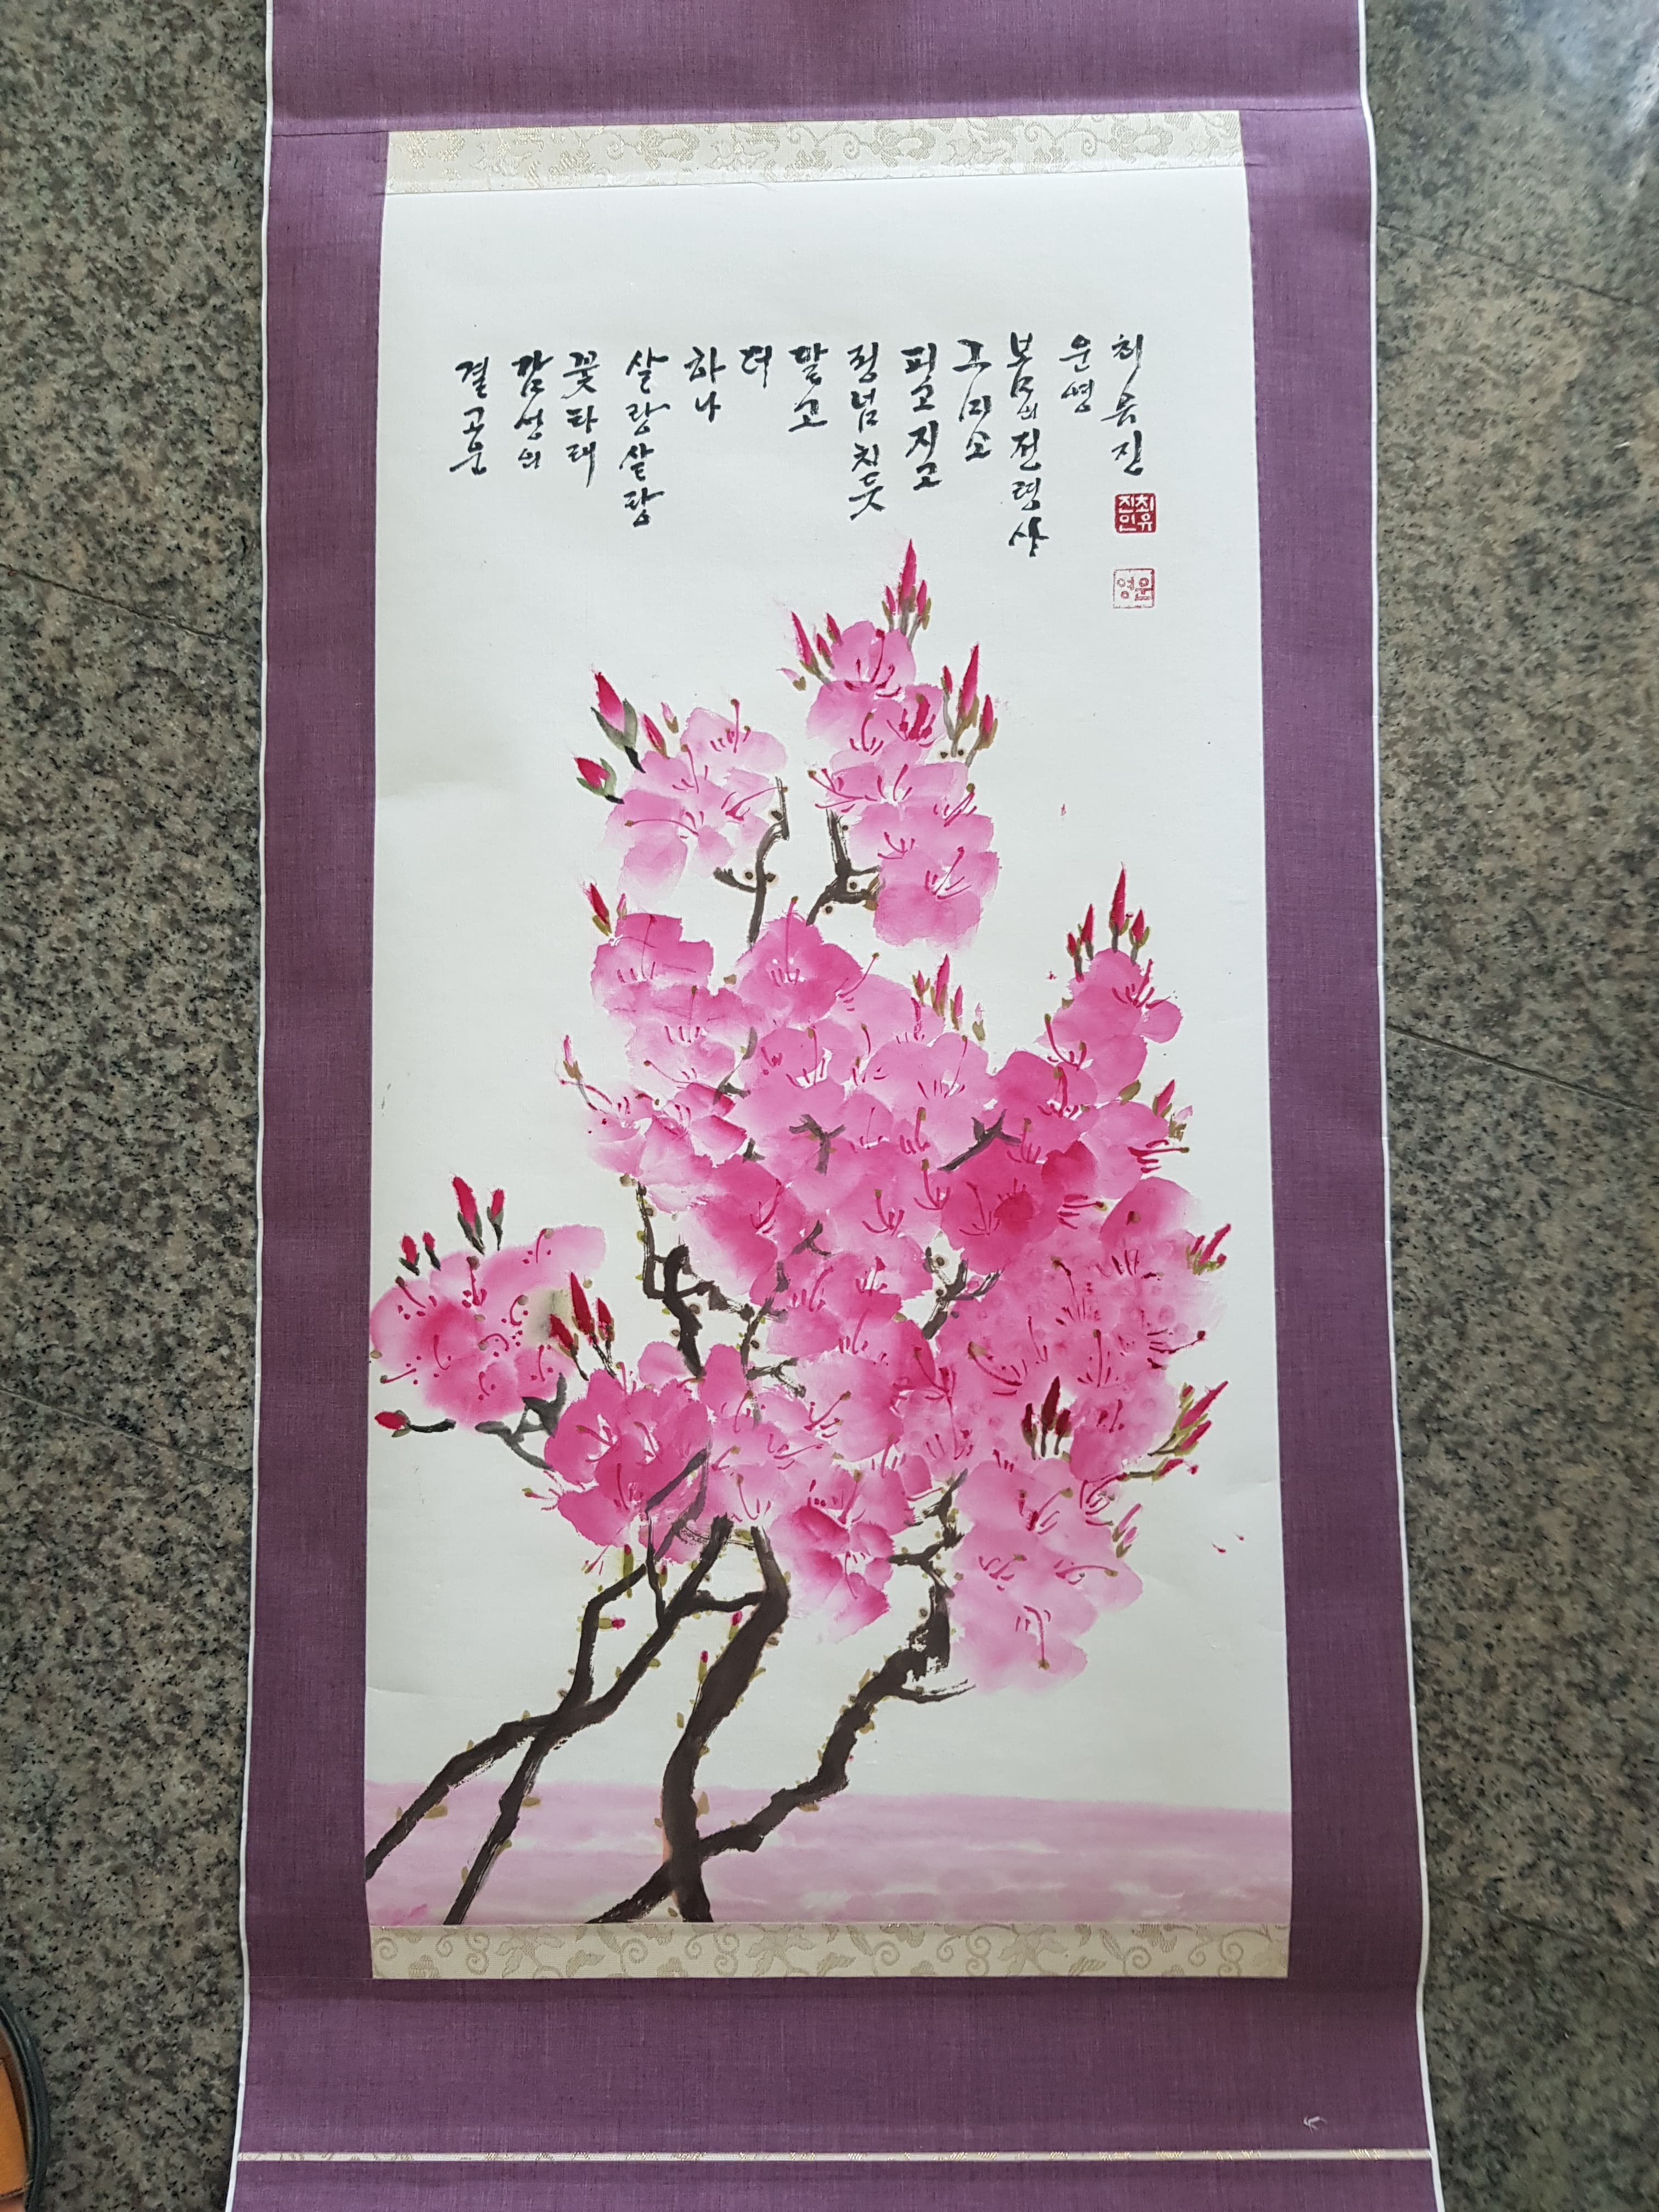 결고운
감성의
꽃타래
살랑살랑
하나
더
말고
정넘치듯
피고지고
그미소
봄의전령사
운영
최유진
최유진인
운영